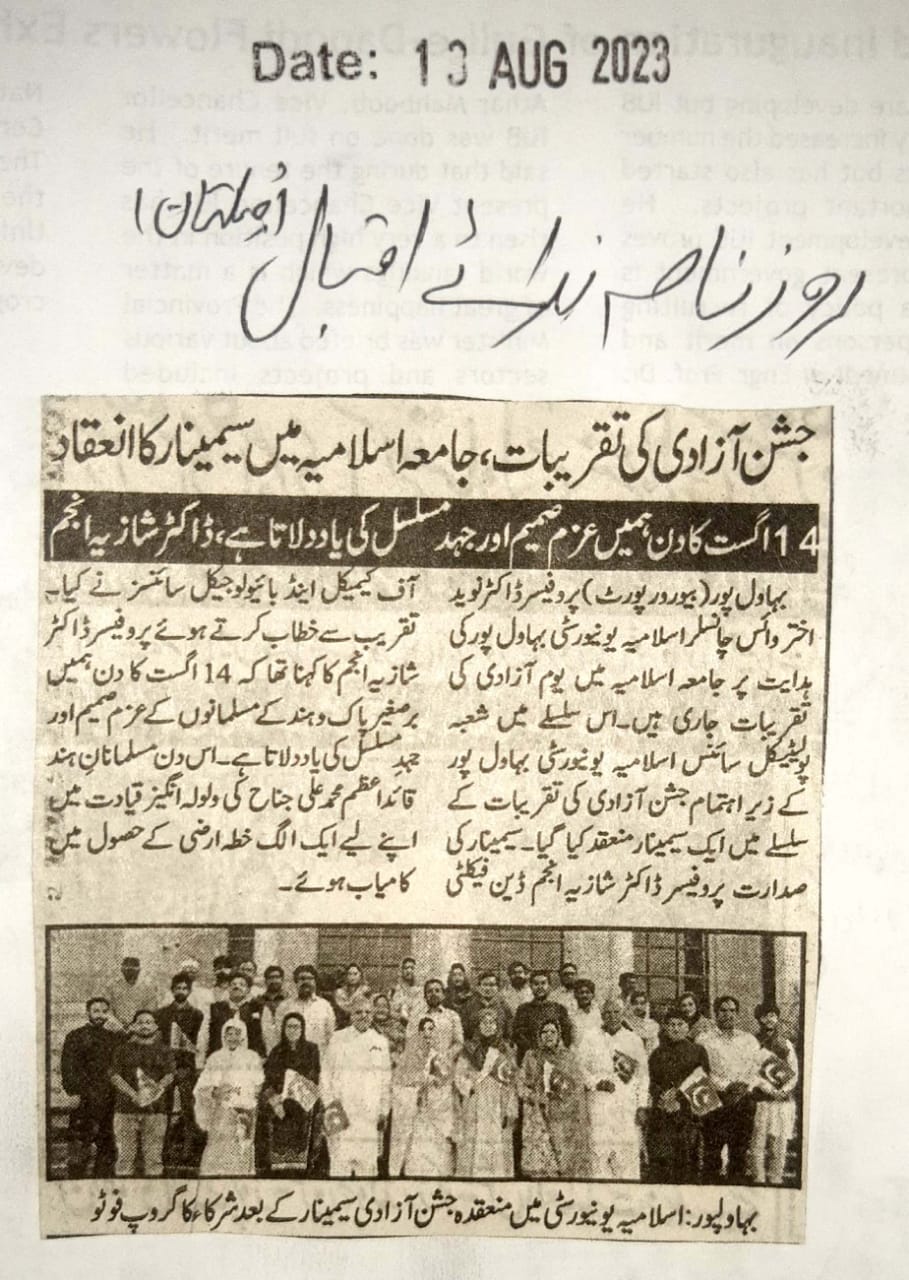 Date: 13 AUG 2023
روزنامہ ندائے اقبال (ملتان)
جشن آزادی کی تقریبات، جامعہ اسلامیہ میں سیمینار کا انعقاد
14 اگست کا دن ہمیں عزم صمیم اور جہد مسلسل کی یاد دلاتا ہے، ڈاکٹر شازیہ انجم
بہاول پور (بیورو رپورٹ) پروفیسر ڈاکٹر نوید
اختر وائس چانسلر اسلامیہ یونیورسٹی بہاول پور کی
ہدایت پر جامعہ اسلامیہ میں یوم آزادی کی
تقریبات جاری ہیں۔ اس سلسلے میں شعبہ
پولیٹیکل سائنس اسلامیہ یونیورسٹی بہاول پور
کے زیر اہتمام جشن آزادی کی تقریبات کے
سلسلے میں ایک سیمینار منعقد کیا گیا۔ سیمینار کی
صدارت پروفیسر ڈاکٹر شازیہ انجم ڈین فیکلٹی
آف کیمیکل اینڈ بائیولوجیکل سائنسز نے کیا۔
تقریب سے خطاب کرتے ہوئے پروفیسر ڈاکٹر
شازیہ انجم کا کہنا تھا کہ 14 اگست کا دن ہمیں
برصغیر پاک و ہند کے مسلمانوں کے عزم صمیم اور
جہدِ مسلسل کی یاد دلاتا ہے۔ اس دن مسلمانانِ ہند
قائد اعظم محمد علی جناح کی ولولہ انگیز قیادت میں
اپنے لیے ایک الگ خطہ ارضی کے حصول میں
کامیاب ہوئے۔
بہاولپور: اسلامیہ یونیورسٹی میں منعقدہ جشن آزادی سیمینار کے بعد شرکاء کا گروپ فوٹو